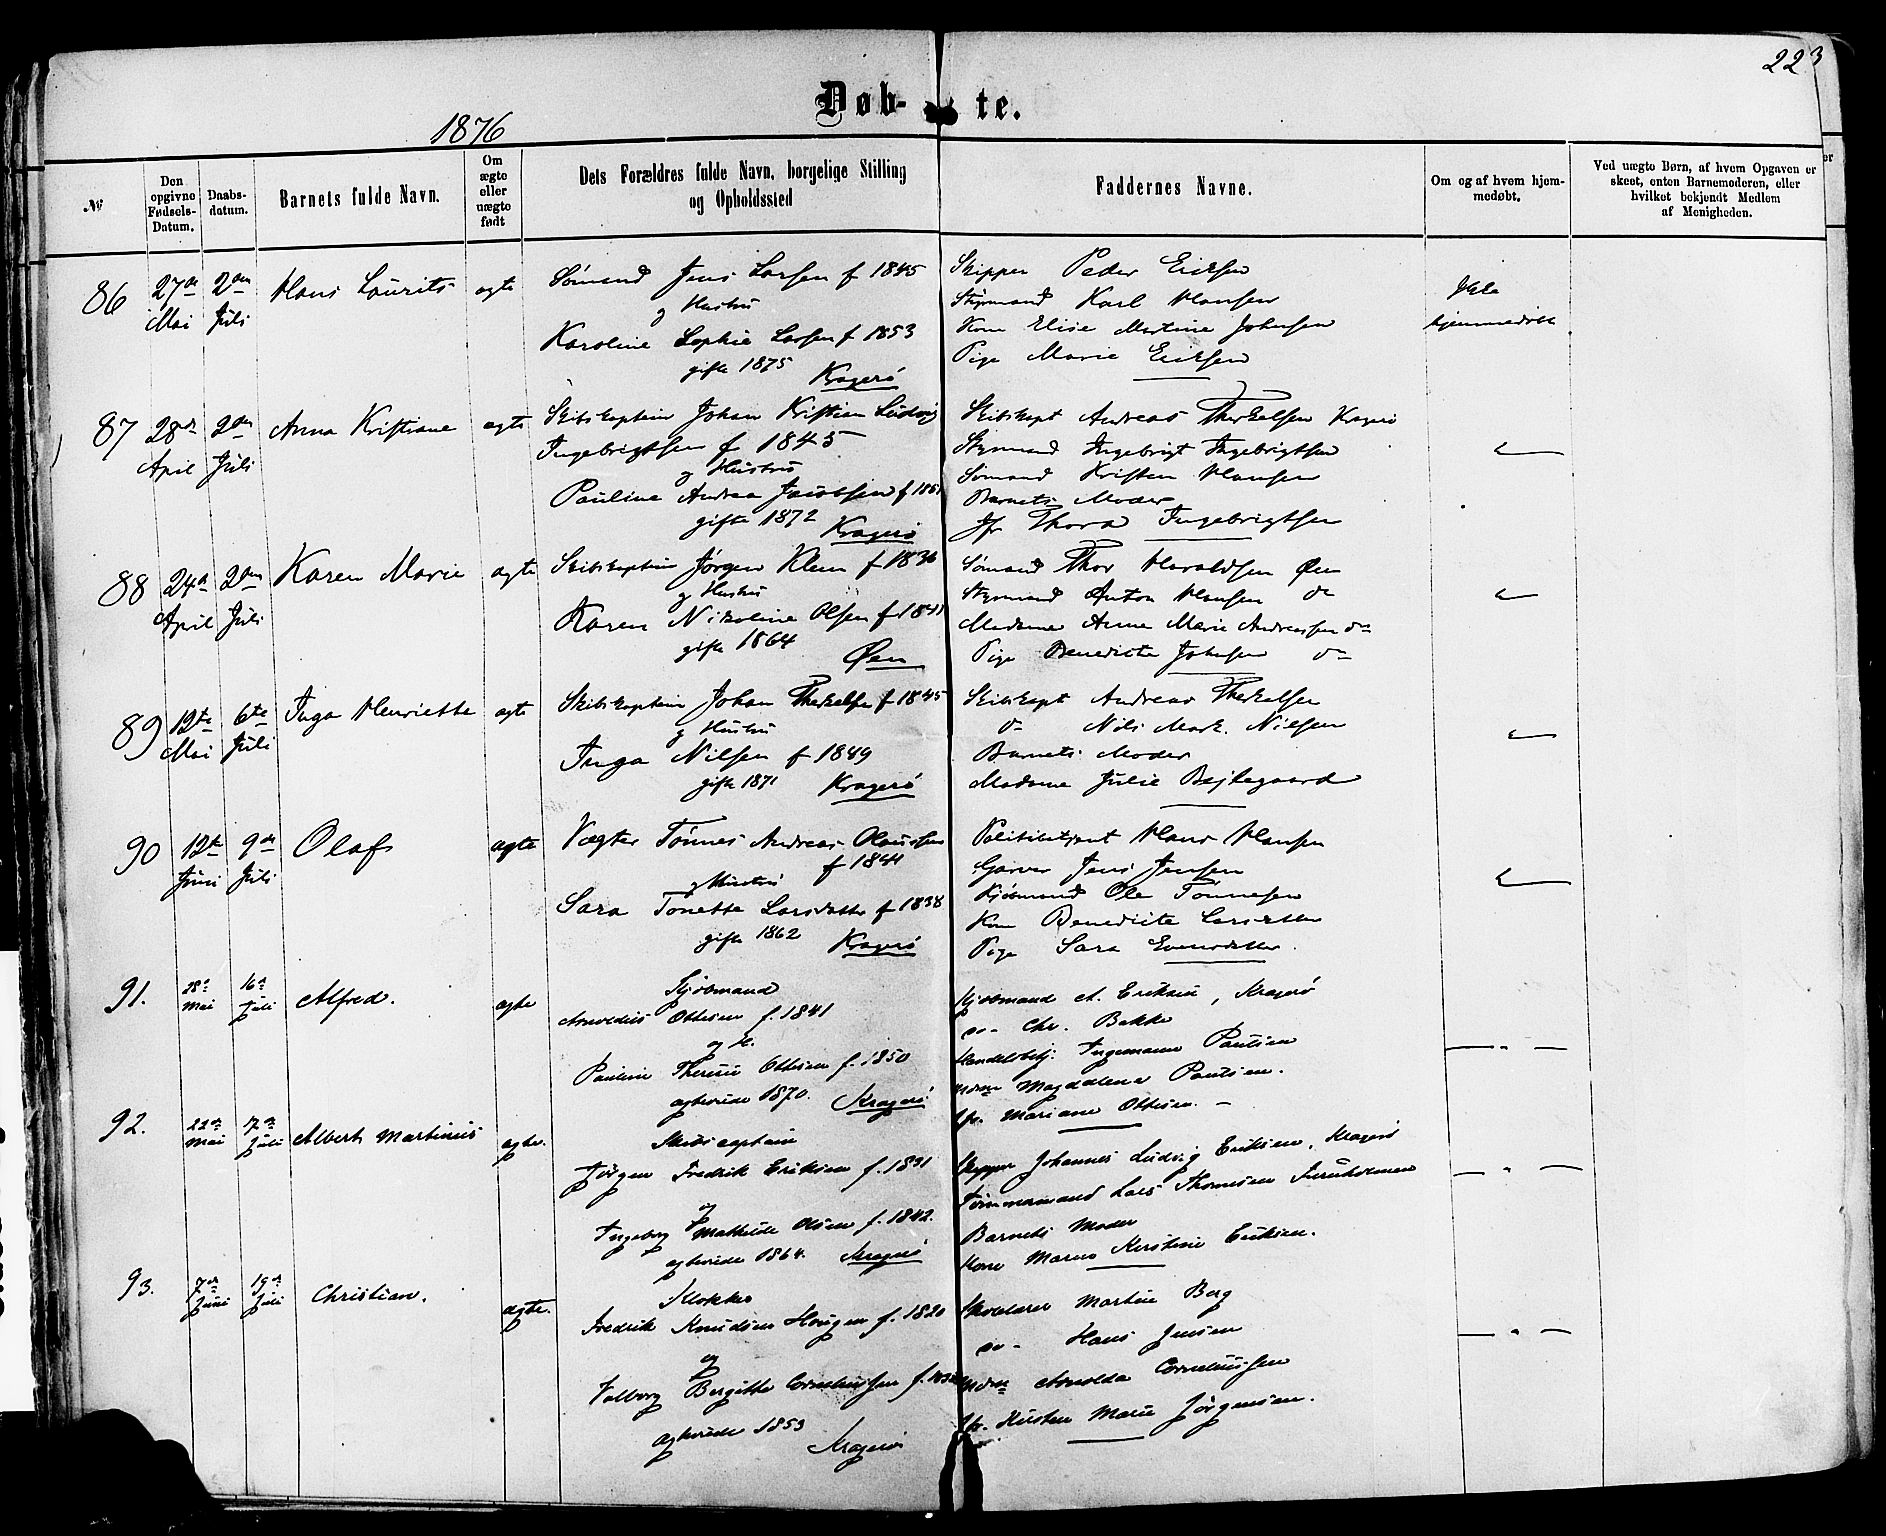 223
Døb- te.
1876
№
Den opgivne Fødsels-Datum.
Daabs-datum.
Barnets fulde Navn.
Om ægte eller uægte født
Dets Forældres fulde Navn, borgelige Stilling og Opholdssted
Faddernes Navne.
Om og af hvem hjem-medøbt.
Ved uægte Børn, af hvem Opgaven er skeet, enten Barnemoderen, eller hvilket bekjendt Medlem af Menigheden.
86 27de Mai 2den Juli Hans Laurits ægte
Sømand Jens Larsen f 1845
og Hustru
Karoline Sophie Larsen f 1853
gifte 1875 Kragerø
Skipper Peder Eriksen
Styrmand Karl Hansen
Kone Elise Martine Johnsen
Pige Marie Eriksen
Ikke
hjemmedøbt
87 28de April 2den Juli Anna Kristiane ægte
Skibskaptein Johan Kristian Ludvig
Ingebrigtsen f 1845
og Hustru
Pauline Andrea Jacobsen f 1851
gifte 1872 Kragerø
Skibskapt Andreas Therkelsen Kragerø
Styrmand Ingebrigt Ingebrigtsen
Sømand Kristen Hansen
Barnets Moder
Jfr Thora Ingebrigtsen
88 24de April 2den Juli Karen Marie ægte
Skibskaptein Jørgen Klem f 1836
og Hustru
Karen Nikoline Olsen f 1841
gifte 1864
Øen
Sømand Thor Haraldsen Øen
Styrmand Anton Hansen do
Madame Anne Marie Andreassen do
Pige Benedicte Johnsen do
89 12te Mai 6te Juli Inga Henriette ægte
Skibskaptein Johan Therkelsen f 1845
og Hustru
Inga Nilsen f 1849
gifte 1871 Kragerø
Skibskapt Andreas Therkelsen
do Nils Mark. Nilsen
Barnets Moder
Madame Julie Bejlegaard
90 12te Juni 9de Juli Olaf ægte
Vægter Tønnes Andreas Olaussen
f 1841
og Hustru
Sara Tonette Larsdatter f 1838
gifte 1862 Kragerø
Politibetjent Hans Hansen
Garver Jens Jensen
Kjøbmand Ole Tønnesen
Kone Benedicte Larsdatter
Pige Sara Evensdatter.
91. 28de Mai 16de Juli Alfred. ægte
Kjøbmand
Ottesen f. 1841
og H.
Pauline Therese Ottesen f. 1850
ægteviede 1870. Kragerø
Kjøbmand A. Eriksen, Kragerø
do- Chr. Bakke
Handelsbetj. Ingemann Paulsen
Mdme Magdalena Paulsen.
Jfr. Mariane Ottesen. -
92. 22de Mai 7de Juli Albert Martinius ægte.
Skibscaptein
Jörgen Fredrik Eriksen f. 1831
og
Ingeborg Mathilde Olsen f. 1842.
ægteviede 1864. Kragerø
Skipper Johannes Ludvig Eriksen, Kragerö
Tømmermand Lars Thomesen Furuholmen
Barnets Moder
Kone Maren Kirstine Eriksen.
93. 7de Juni 19de Juli Christian. ægte.
Klokker
Fredrik Knudsen Hougen f. 1820
og
Valborg Bergitte Corneliussen f.
ægteviede 1853
Kragerø
Skolelærer Martin Berg
do- Hans Jensen
Mdme Arnolda Corneliussen
Jfr. Kirsten Marie Jörgensen.